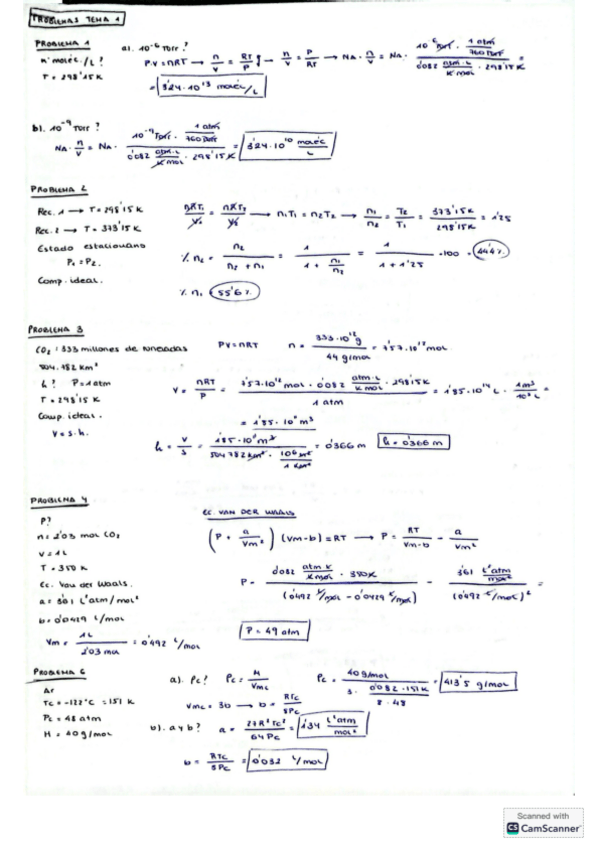 PROBLEMAS TEMA 1
PROBLEMA 1
nº moléc./L?
T = 298'15 K
a). 10⁻⁶ Torr?
P·V = nRT → n/V = P/RT → NA · n/V = NA · (10⁻⁶ Torr · 1 atm/760 Torr) / (0'082 atm·L/K mol · 298'15 K) =
= 3'24·10¹³ moléc/L
b). 10⁻⁹ Torr?
NA · n/V = NA · (10⁻⁹ Torr · 1 atm/760 Torr) / (0'082 atm·L/K mol · 298'15 K) = 3'24·10¹⁰ moléc/L
PROBLEMA 2
Rec. 1 → T = 298'15 K
Rec. 2 → T = 373'15 K
Estado estacionario
P₁ = P₂.
Comp. ideal.
nRT₁/V₁ = nRT₂/V₂ → n₁T₁ = n₂T₂ → n₁/n₂ = T₂/T₁ = 373'15 K/298'15 K = 1'25
% n₂ = n₂/(n₂ + n₁) = 1/(1 + n₁/n₂) = 1/(1 + 1'25) ·100 = 44'4 %
% n₁ = 55'6 %
PROBLEMA 3
CO₂: 333 millones de toneladas
504.782 km²
h? P = 1 atm
T = 298'15 K
Comp. ideal.
V = s·h.
PV = nRT n = 333·10¹² g / 44 g/mol = 7'57·10¹² mol
V = nRT/P = (7'57·10¹² mol · 0'082 atm·L/K mol · 298'15 K) / 1 atm = 1'85·10¹⁴ L · 1 m³/10³ L =
= 1'85·10¹¹ m³
h = V/S = 1'85·10¹¹ m³ / (504782 km² · 10⁶ m²/1 km²) = 0'366 m h = 0'366 m
PROBLEMA 4
P?
n = 2'03 mol CO₂
V = 1 L
T = 350 K
Ec. Van der Waals.
a = 3'61 L² atm/mol²
b = 0'0429 L/mol
Vm = 1 L / 2'03 mol = 0'492 L/mol
Ec. VAN DER WAALS
(P + a/Vm²)(Vm-b) = RT → P = RT/(Vm-b) - a/Vm²
P = (0'082 atm L/K mol · 350 K) / (0'492 L/mol - 0'0429 L/mol) - (3'61 L² atm/mol²) / (0'492 L/mol)² =
P = 49 atm
PROBLEMA 6
Ar
Tc = -122°C = 151 K
Pc = 48 atm
M = 40 g/mol
a). ρc? ρc = M/Vmc ρc = 40 g/mol / (3 · 0'082·151 K / 8·48) = 413'5 g/mol
Vmc = 3b → b = RTc/8Pc
b). a y b? a = 27R²Tc²/64Pc = 1'34 L² atm/mol²
b = RTc/8Pc = 0'032 L/mol
Scanned with
CS CamScanner